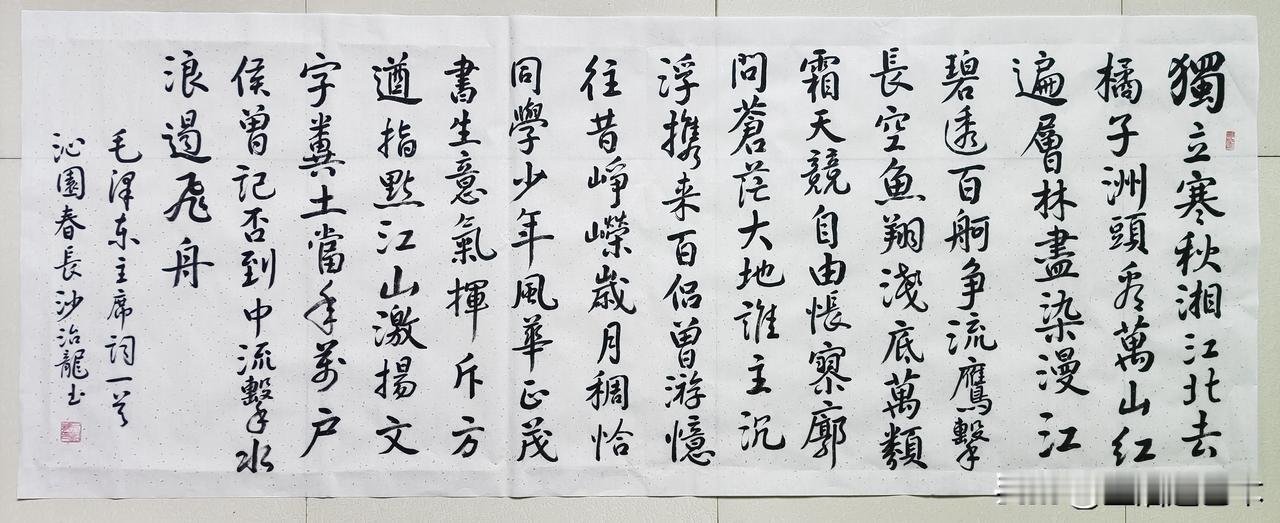 獨立寒秋湘江北去
橘子洲頭看萬山红
遍層林盡染漫江
碧透百舸争流鷹擊
長空魚翔淺底萬類
霜天競自由悵寥廓
問蒼茫大地誰主沉
浮携来百侣曾游憶
往昔崢嶸歲月稠恰
同學少年風華正茂
書生意氣揮斥方
遒指點江山激揚文
字糞土當年萬户
侯曾記否到中流擊水
浪遏飛舟
毛澤东主席詞一首
沁園春長沙治龍书